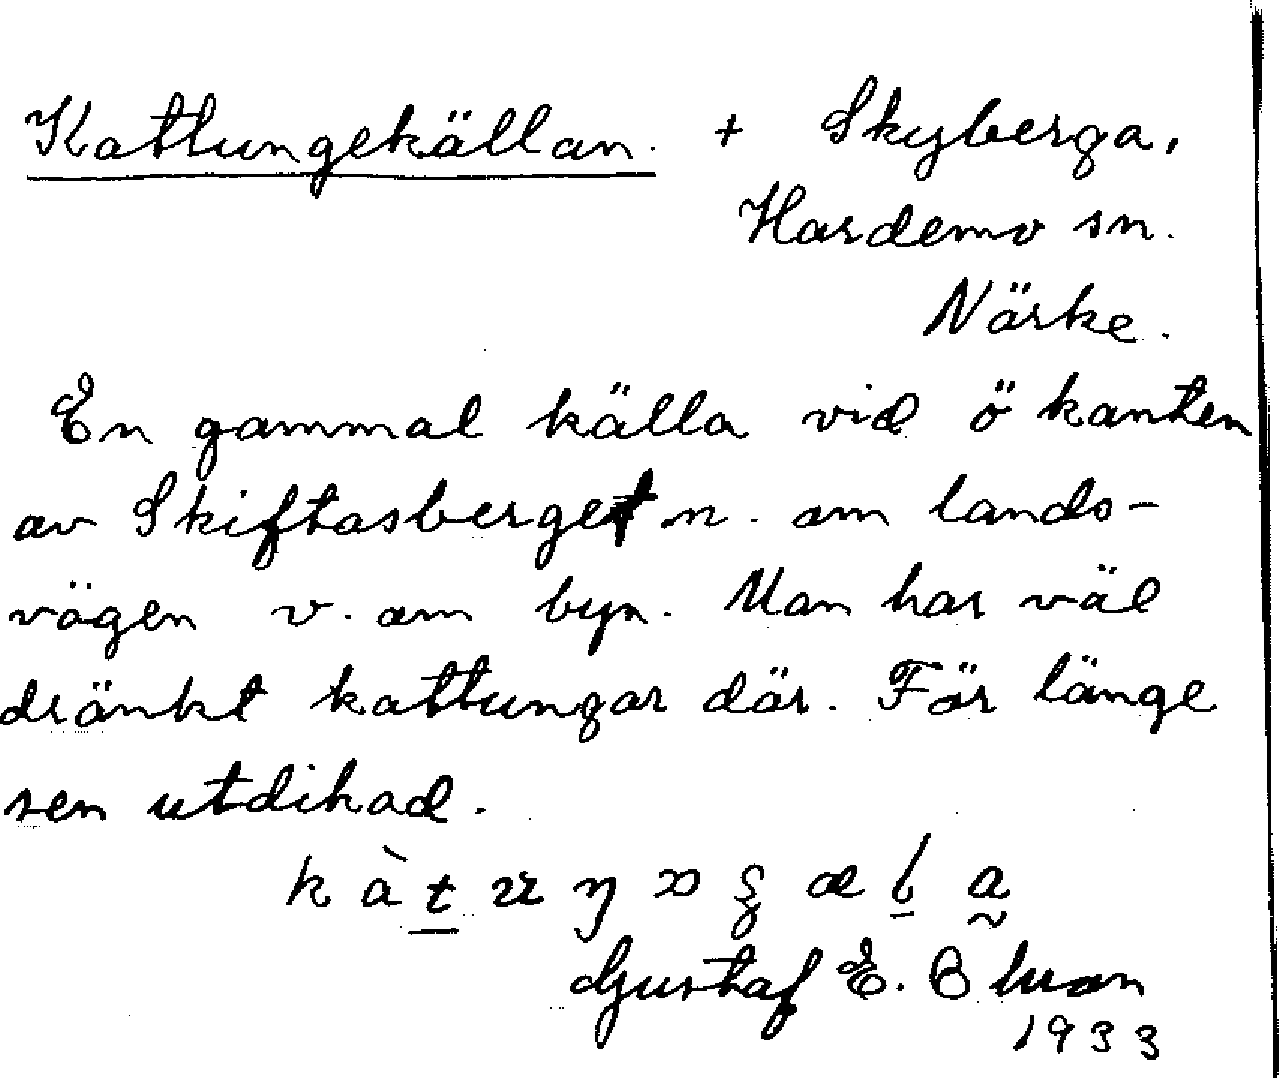 Kattungekällan. + Skyberga,
Hardemo sn.
Närke.
En gammal källa vid ö kanten
av Skiftasberget n. om lands-
vägen v. om byn. Man har väl
dränkt kattungar där. För länge
sen utdikad.
Gustaf E. Bluan
1933